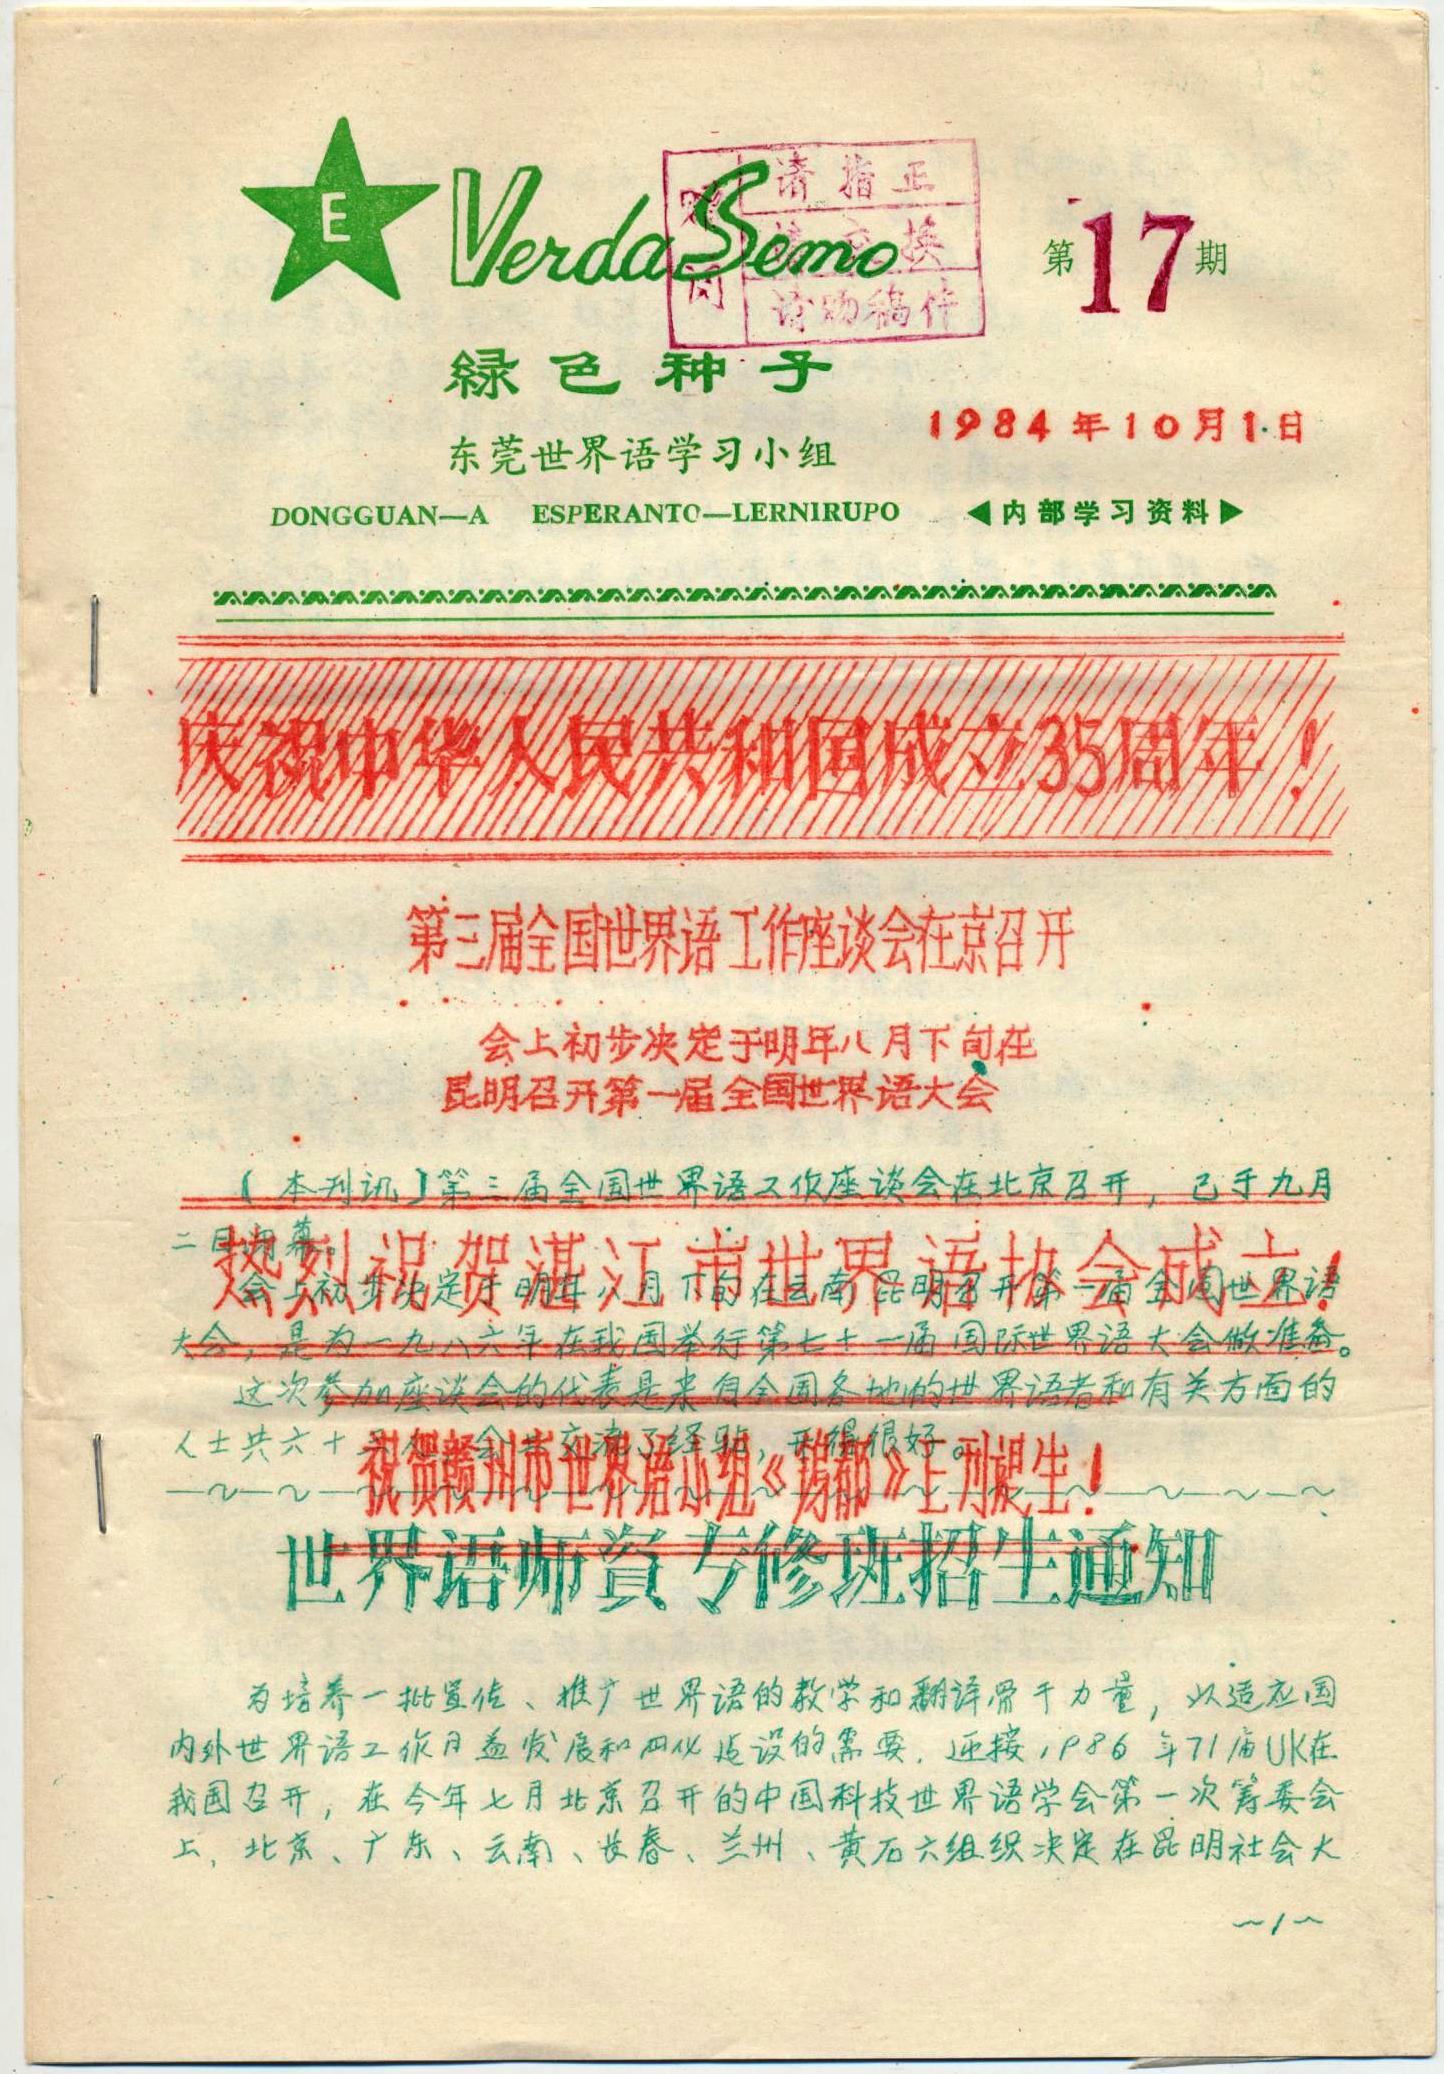 E
Verda Semo
请指正
换
请 稿件
第17期
緑色种子
1984年10月1日
东莞世界语学习小组
DONGGUAN—A ESPERANTO—LERNIRUPO
◀内部学习资料▶
庆祝中华人民共和国成立35周年！
第三届全国世界语工作座谈会在京召开
会上初步决定于明年八月下旬在
昆明召开第一届全国世界语大会
【本刊讯】第三届全国世界语工作座谈会在北京召开，已于九月
二日闭幕。
热烈祝贺湛江市世界语协会成立！
会上初步决定于明年八月下旬在云南昆明召开第一届全国世界语
大会，是为一九八六年在我国举行第七十一届国际世界语大会做准备。
这次参加座谈会的代表是来自全国各地的世界语者和有关方面的
人士共六十 会 交流了经验，开得很好。
祝贺赣州市世界语小组《 》 刊诞生！
世界语师資专修班招生通知
为培养一批宣传、推广世界语的教学和翻译骨干力量，以适应国
内外世界语工作日益发展和四化建设的需要，迎接1986年71届UK在
我国召开，在今年七月北京召开的中国科技世界语学会第一次筹委会
上，北京、广东、云南、长春、兰州、黄石六组织决定在昆明社会大
～1～